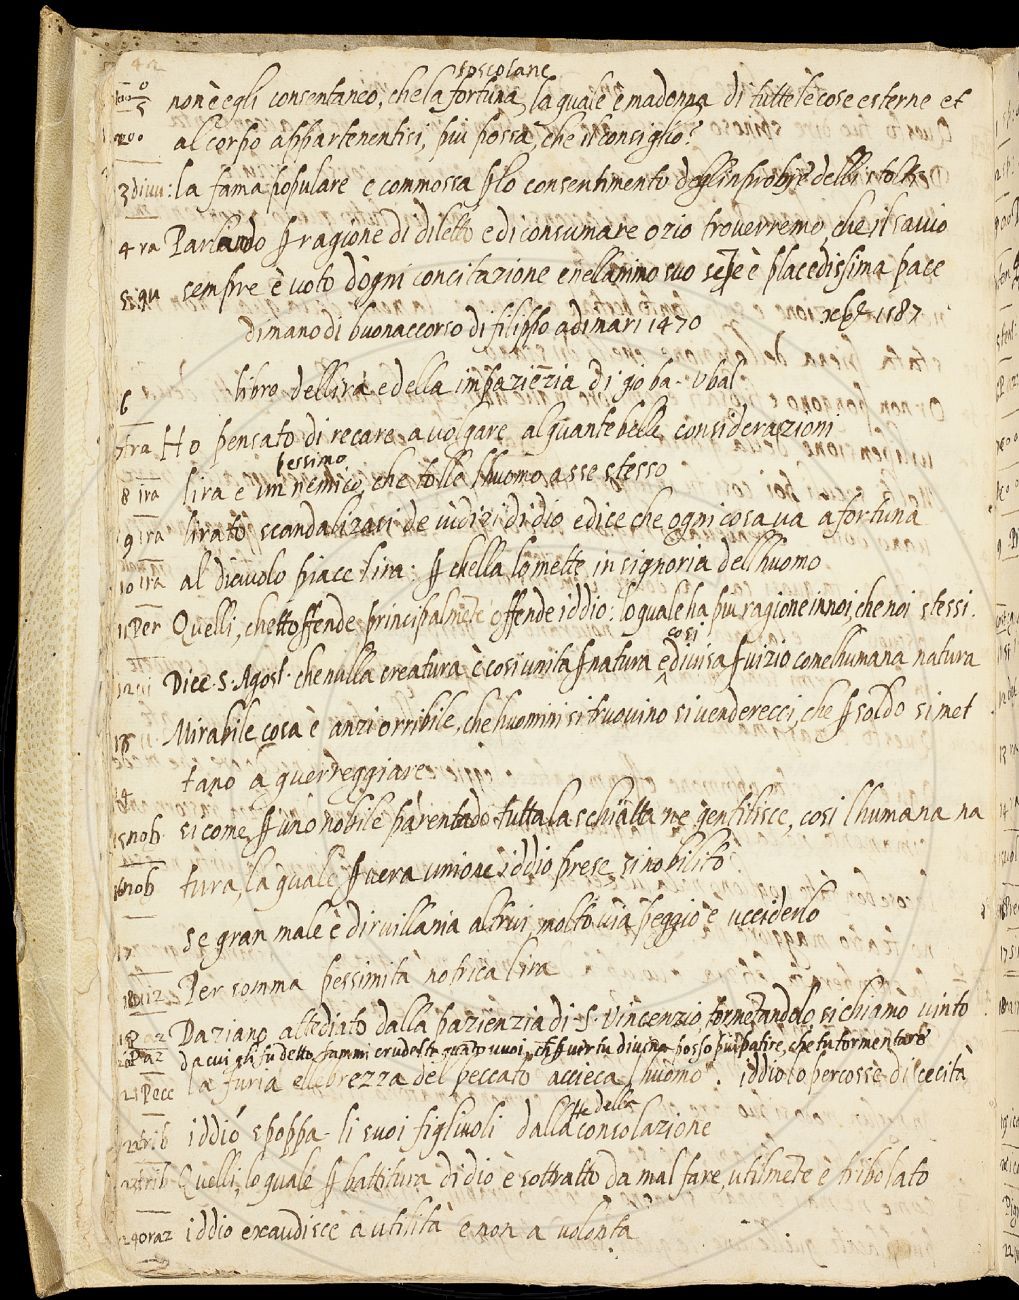 tosco lane
non è egli consentaneo, che la fortuna, la quale è madonna di tutte le cose esterne et
al corpo appartenentisi, piu possa, che il consiglio?
3 divu: la fama populare e commossa p lo consentimento degl'inprobi e delli stolti
4 ra Parlando p ragione di diletto e di consumare ozio troverremo, che il savio
sempre è voto d'ogni concitazione e nel'animo suo sepe è placedissima pace
di mano di buonaccorso di filippo adimari 1470 1587
6 libro dell'ira e della impazienzia di gio ba. Ubal
7 ira Ho pensato di recare a volgare alquante belle considerazioni
pessimo
8 ira l'ira e un nemico, che tolle l'huomo a sse stesso
9 ira l'irato scandalizasi de iudizi di dio e dice che ogni cosa va a fortuna
10 ira al diavolo piace l'ira: p ch'ella lo mette in signoria dell'huomo
11 Per Quelli, che tt'offende principalmēte offende iddio: lo quale ha piu ragione in noi, che noi stessi.
così
12 Dice S. Agost. che nulla creatura è così unita p natura e divisa p vizio come l'humana natura
13 Mirabile cosa è anzi orribile, che huomini si truovino si venderecci, che p soldo si met
14 tano a guerreggiare
15 nob. si come p uno nobile parentado tutta la schiatta ne gentilisce, così l'humana na
16 nob tura, la quale p vera unione iddio prese si nobilitò
17 se gran male è dir villania altrui, molto via peggio è ucciderlo
18 viz Per somma pessimità notrica l'ira
19 paz Daziano attediato dalla pazienzia di S. Vincenzio, tormētandolo, si chiamò vinto
20 Paz da cui gli fu detto, fammi crudeltà quāto vuoi, ch'p virtu divina posso piu patire, che tu tormentare
21 Pecc la furia ell'ebrezza del peccato accieca l'huomo. iddio lo percosse di cecità
tte della
22 trib iddio spoppa li suoi figliuoli dalla consolazione
23 trib Quelli, lo quale p battitura di dio è sottratto da mal fare, utilmēte è tribolato
24 oraz iddio exaudisce a utilità e non a volontà